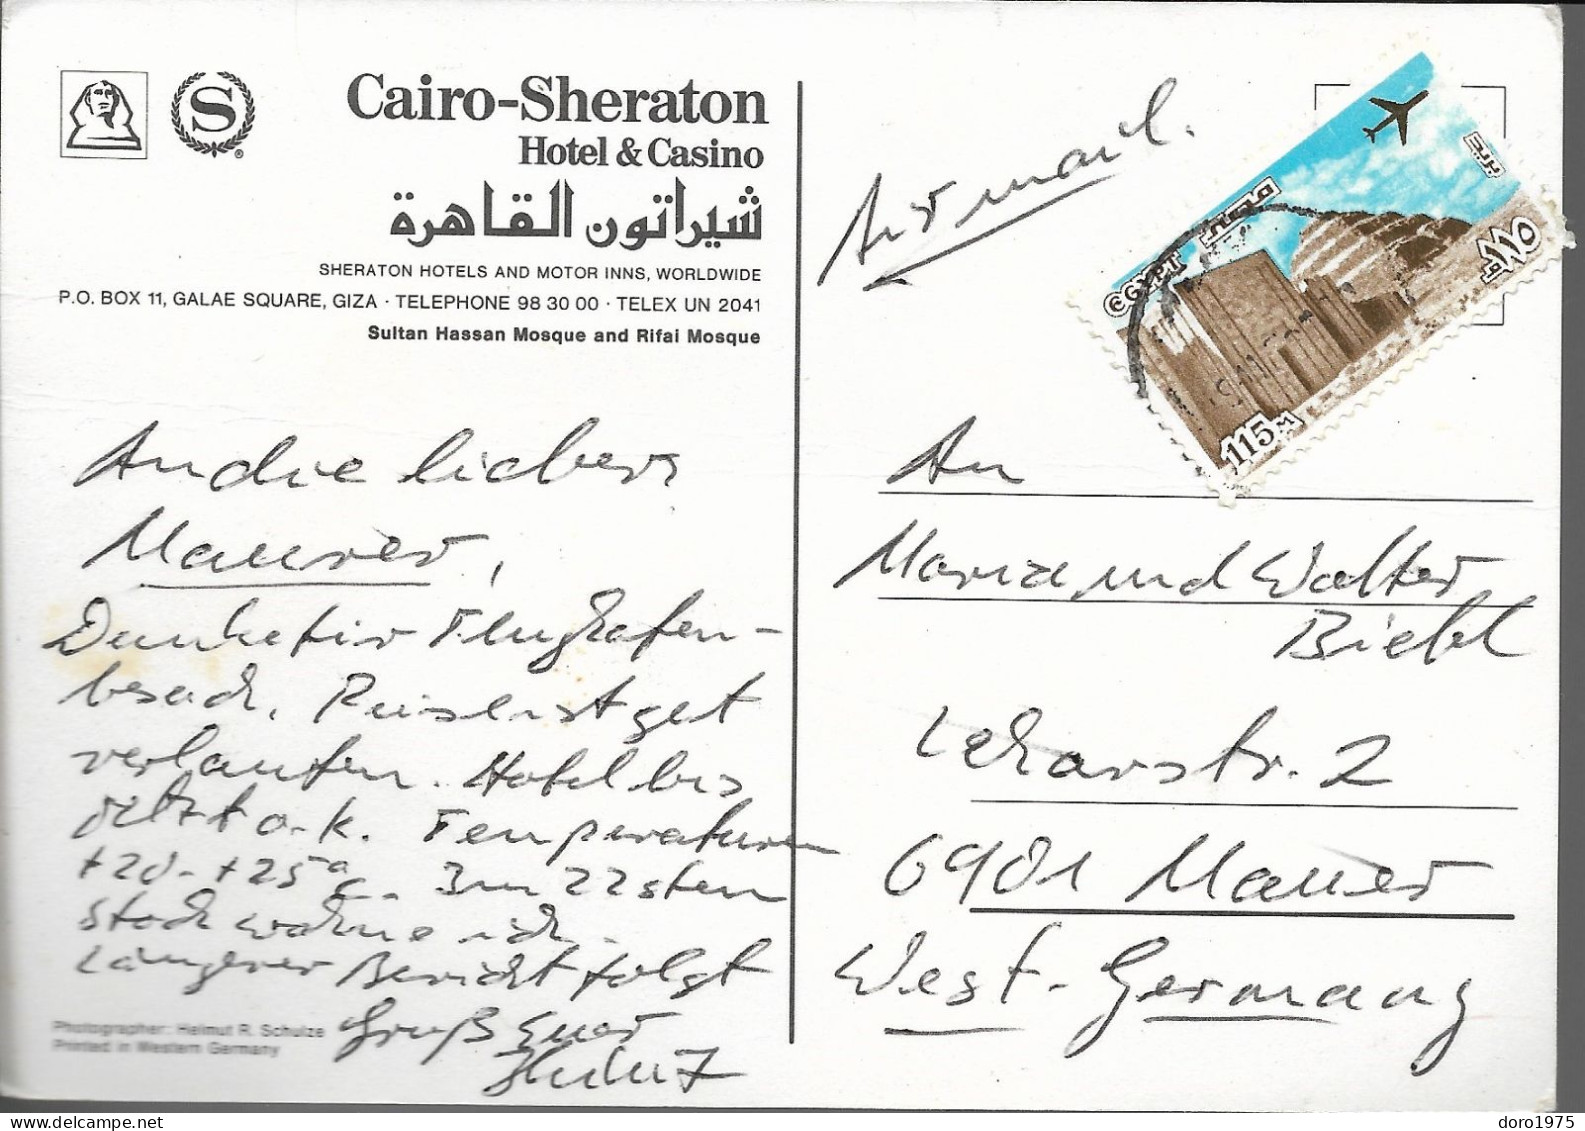 Cairo-Sheraton
Hotel & Casino
شيراتون القاهرة
SHERATON HOTELS AND MOTOR INNS, WORLDWIDE
P.O. BOX 11, GALAE SQUARE, GIZA · TELEPHONE 98 30 00 · TELEX UN 2041
Sultan Hassan Mosque and Rifai Mosque
S
®
An die lieben
Maurer,
Danke für Flughafen-
besuch. Reise ist gut
verlaufen. Hotel bis
jetzt o.k. Temperaturen
+20 - +25° C. Im 22sten
Stock wohne ich.
Längerer Bericht folgt
Gruß Euer
Photographer: Helmut R. Schulze
Printed in Western Germany
Air mail.
EGYPT مصر
بريد
١١٥م
115 M
An
Maria und Walter
Biebl
Leharstr. 2
6901 Mauer
West-Germany
doro1975